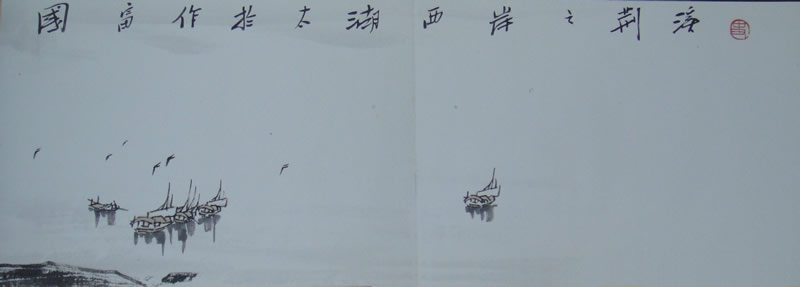 國富作於太湖西岸之荆溪